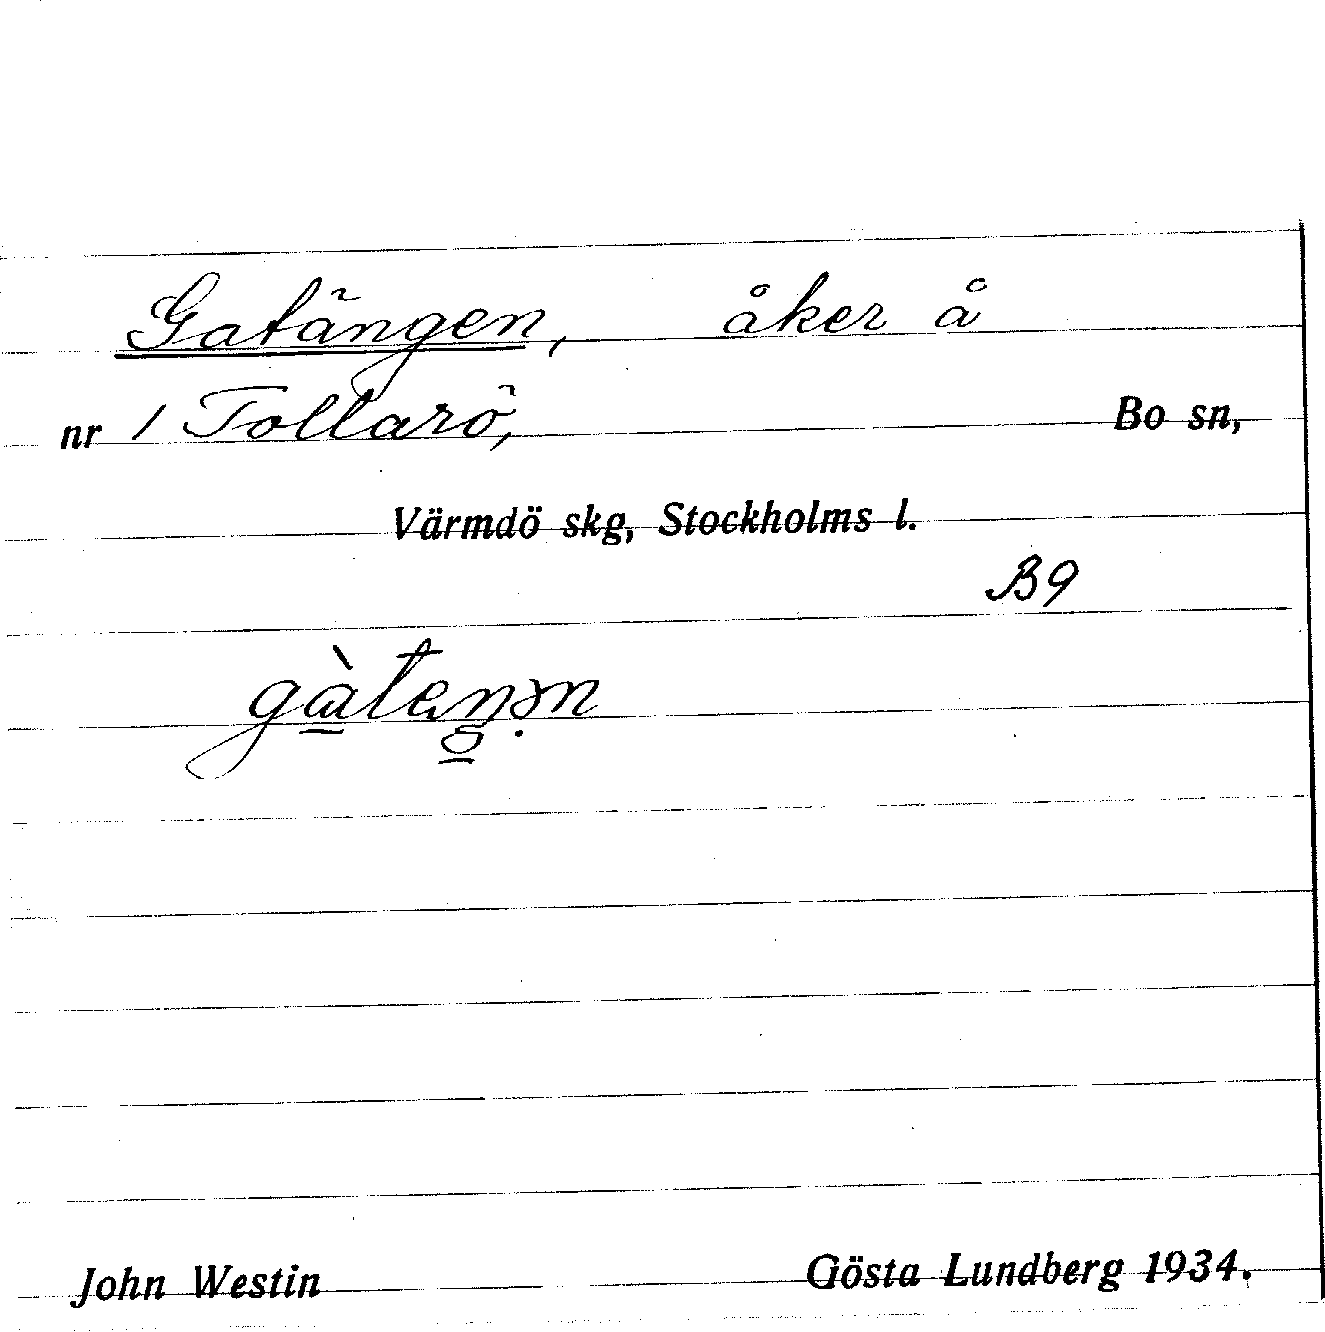 Gatängen, åker å
nr 1 Tollarö, Bo sn,
Värmdö skg, Stockholms l.
B9
John Westin Gösta Lundberg 1934.